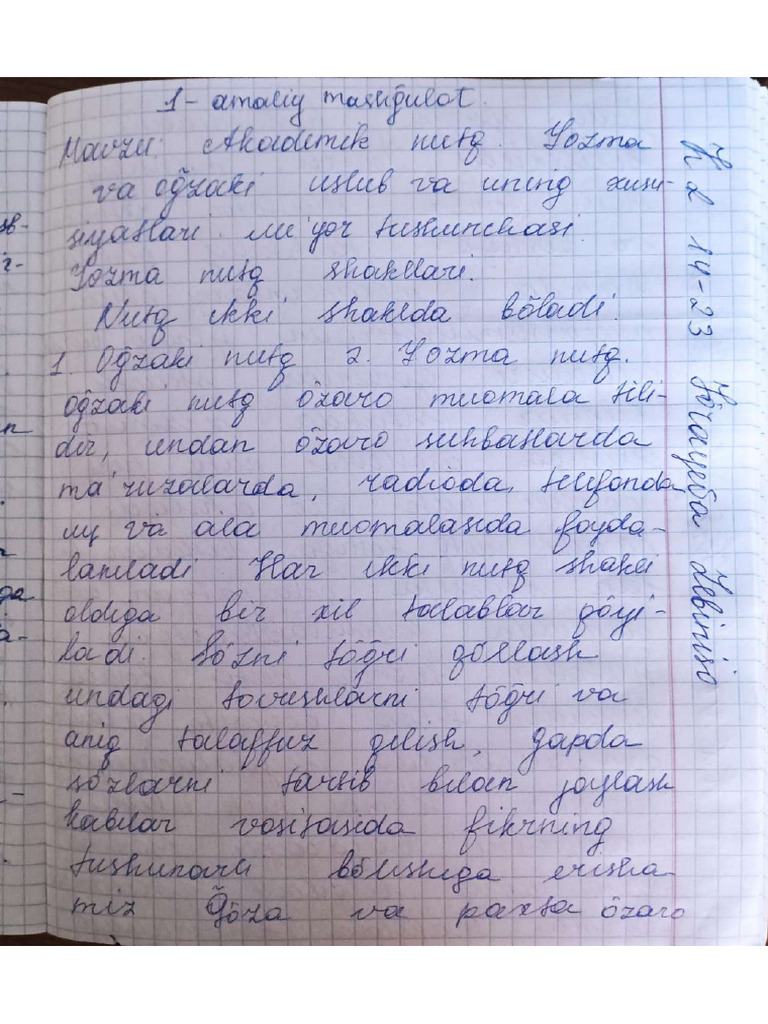 1- amaliy mashg̃ulot.
Mavzu: Akademik nutq. Yozma
va og̃zaki uslub va uning xusu-
siyatlari. me'yor tushunchasi.
Yozma nutq shakllari.
Nutq ikki shaklda bõladi.
1. Og̃zaki nutq 2. Yozma nutq.
og̃zaki nutq õzaro muomala tili-
dir, undan õzaro suhbatlarda
ma'ruzalarda, radioda, telefonda,
uy va oila muomalasida foyda-
laniladi Har ikki nutq shakli
oldiga bir xil talablar qõyi-
ladi. Sõzni tõg̃ri qõllash
undagi tovushlarni tõg̃ri va
aniq talaffuz qilish, gapda
sõzlarni tartib bilan joylash
kabilar vositasida fikrning
tushunarli bõlishiga erisha-
miz G̃õza va paxta õzaro
14-23 Tõrayeva Zebiniso
sh-
n
ga
a-